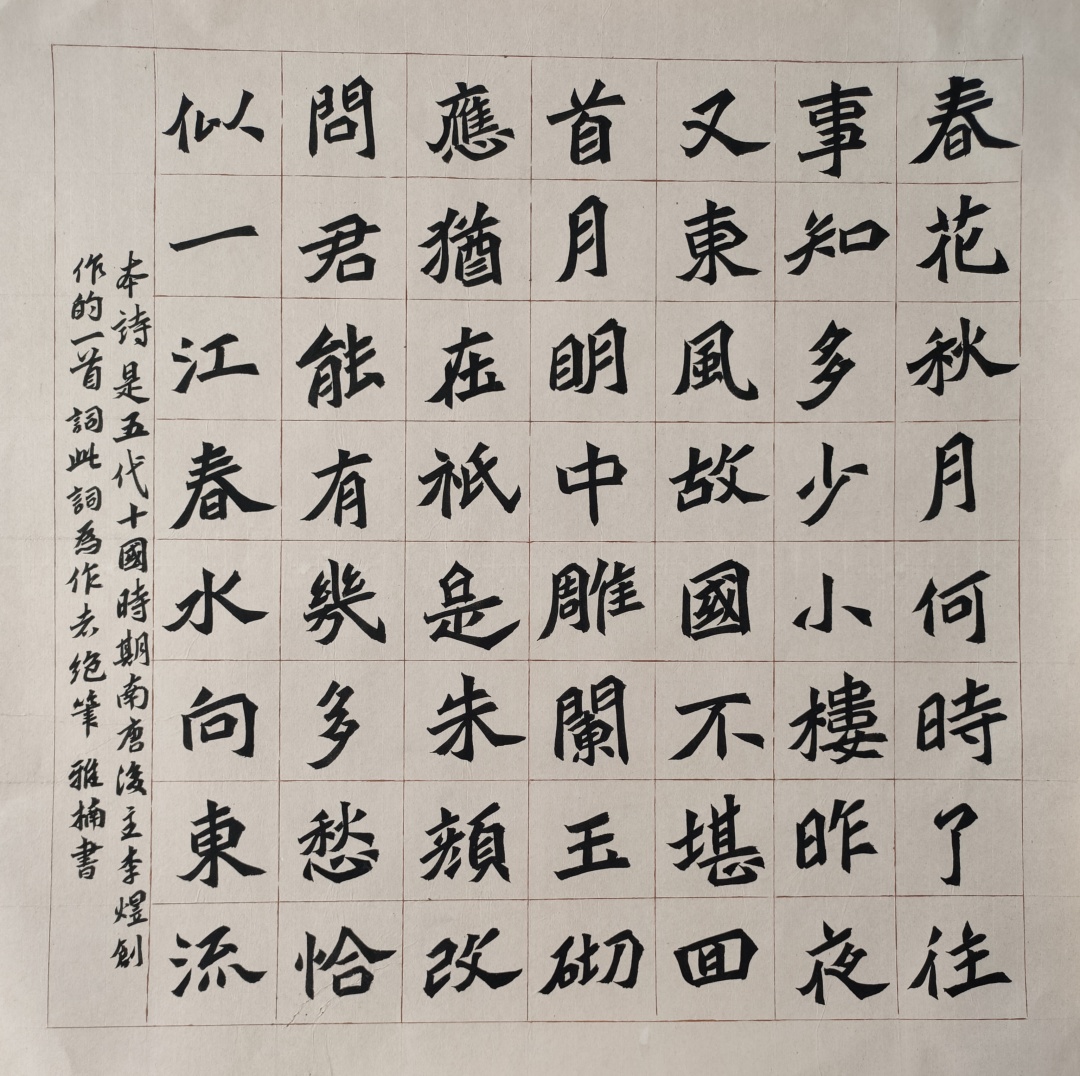 春花秋月何時了往
事知多少小樓昨夜
又東風故國不堪回
首月明中雕闌玉砌
應猶在祗是朱顏改
問君能有幾多愁恰
似一江春水向東流
本詩是五代十國時期南唐後主李煜創
作的一首詞此詞為作者絶筆 雅楠書